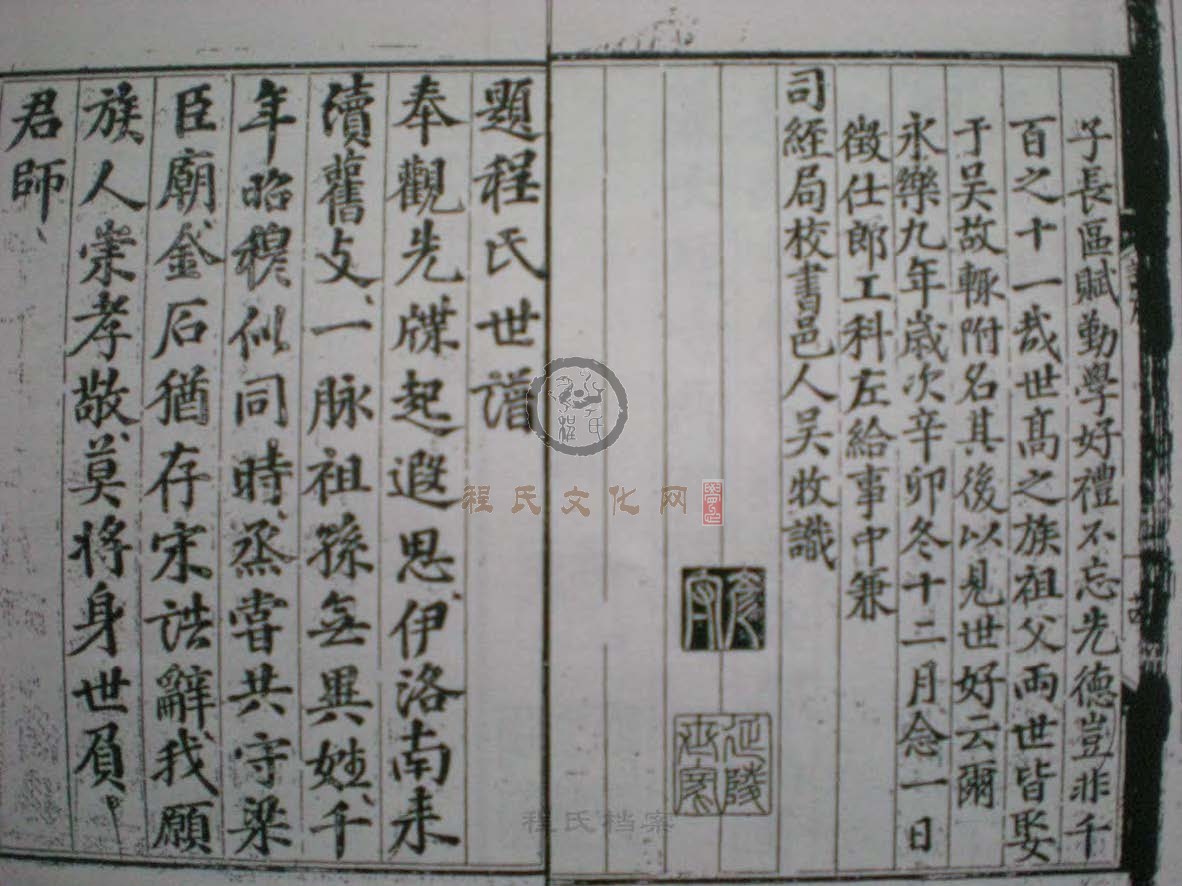 子長區賦勤學好禮不忘先德豈非千
百之十一哉世髙之族祖父兩世皆娶
于吴故輒附名其後以見世好云爾
永樂九年歲次辛卯冬十二月念一日
徵仕郎工科左給事中兼
司經局校書邑人吴牧識
題程氏世譜
奉觀先牒起遐思伊洛南来
續舊支、一脉祖孫無異姓、千
年昭穆似同時、烝嘗共守梁
臣廟、金石猶存宋誥辭、我願
族人崇孝敬、莫将身世負
君師、
程氏文化网
程氏档案